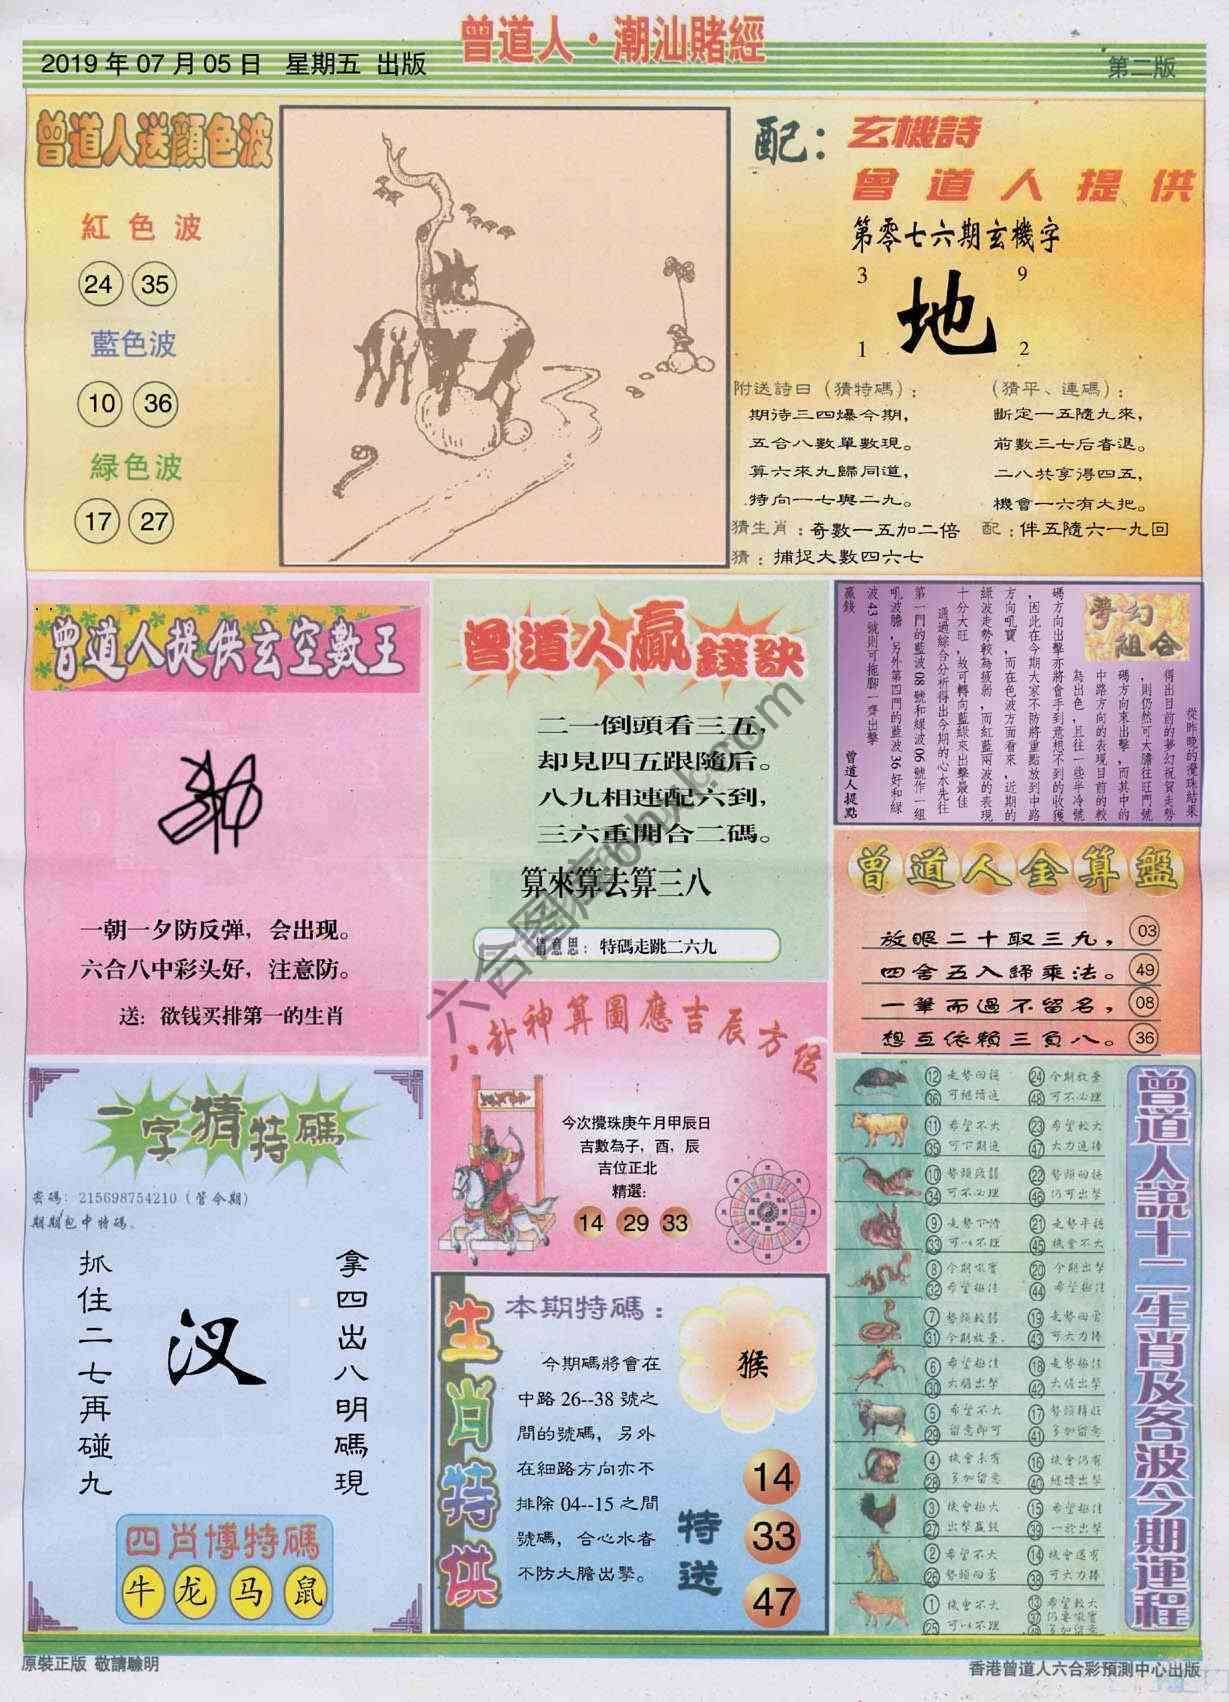 曾道人·潮汕賭經
2019年07月05日 星期五 出版
第二版
曾道人送顏色波
紅色波
24 35
藍色波
10 36
緑色波
17 27
配：
玄機詩
曾道人提供
第零七六期玄機字
3 9
地
1 2
附送詩曰（猜特碼）：
期待三四爆今期，
五合八數單數現。
算六來九歸同道，
特向一七與二九。
（猜平、連碼）：
斷定一五隨九來，
前數三七后看退。
二八共享得四五，
機會一六有大把。
猜生肖：奇數一五加二倍
配：伴五隨六一九回
猜：捕捉大數四六七
曾道人提供玄空數王
一朝一夕防反弹，会出现。
六合八中彩头好，注意防。
送：欲钱买排第一的生肖
曾道人贏錢訣
二一倒頭看三五，
却見四五跟隨后。
八九相連配六到，
三六重開合二碼。
算來算去算三八
猜意思：特碼走跳二六九
夢幻組合
從昨晚的攪珠結果
得出目前的夢幻祝賀走勢
，則仍然可大膽往旺門號
碼方向來出擊，而其中的
中路方向的表現目前的較
為出色，且往一些半冷號
碼方向出擊亦將會手到意想不到的收獲
，因此在今期大家不防將重點放到中路
方向吼寶，而在色波方面看來，近期的
緑波走勢較為疲弱，而紅藍兩波的表現
十分大旺，故可轉向藍綠來出擊最佳
通過綜合分析得出今期的心水先往
第一門的藍波08號和緑波06號作一組
吼波膽，另外第四門的藍波36好和緑
波43號則可拖腳一齊出擊
贏錢
曾道人提點
曾道人金算盤
放眼二十取三九， 03
四舍五入歸乘法。 49
一筆而過不留名， 08
想互依賴三負八。 36
八卦神算圖應吉辰方位
今次攪珠庚午月甲辰日
吉數為子，酉，辰
吉位正北
精選：
14 29 33
一字猜特碼
密碼：215698754210（管今期）
期期包中特碼。
抓住二七再碰九
汊
拿四出八明碼現
四肖博特碼
牛 龙 马 鼠
生肖特供
本期特碼：
猴
今期碼將會在
中路26--38號之
間的號碼，另外
在細路方向亦不
排除04--15之間
號碼，合心水者
不防大膽出擊。
特送
14
33
47
曾道人説十二生肖及各波今期運程
12 走勢回穩 24 今期放棄
36 可繼續追 48 可不必理
11 希望不大 23 希望較大
35 可下期追 47 大力追捧
10 勢頭疲弱 22 勢頭回穩
34 可不必理 46 仍可出擊
9 走勢下滑 21 走勢平穩
33 可以不理 45 機會不大
8 今期吼寶 20 今期出擊
32 希望極佳 44 希望極佳
7 勢頭較弱 19 走勢回勇
31 今期放棄 43 可大力捧
6 希望極佳 18 走勢極佳
30 大膽出擊 42 大膽出擊
5 希望不大 17 勢頭轉旺
29 留意即可 41 多加留意
4 機會未有 16 機會仍有
28 多加留意 40 繼續出擊
3 機會極大 15 希望極佳
27 出擊贏錢 39 一於出擊
2 希望不大 14 機會還有
26 勢頭回勇 38 可大力捧
1 機會不大 13 希望較大
25 可以不理 37 仍要吼寶
49 多加留意
原裝正版 敬請驗明
香港曾道人六合彩預測中心出版
六合图库bhxc.com